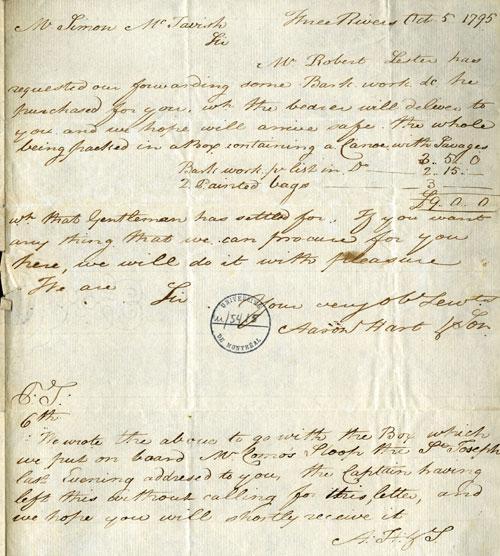 Mr Simon McTavish Three Rivers Oct 5 1795
Sir
Mr Robert Lester has
requested our forwarding some Bark work &c he
purchased for you. wh the bearer will deliver to
you and we hope will arrive safe. the whole
being packed in a Box containing a Canoe with Savages
3. 5. 0
Bark work pr list in Do 2. 15. —
2 Painted bags 3
£9. 0. 0
wh that Gentleman has settled for. If you want
any thing that we can procure for you
here, we will do it with pleasure
We are Sir Your very Obt Servts
Aaron Hart & Son
UNIVERSITÉ
DE MONTRÉAL
6th
We wrote the above to go with the Box which
we put on board Mr Sloop the St Joseph
last Evening addresed to you, the Captain having
left this without calling for this letter, and
we hope you will shortly receive it
A. H. & S